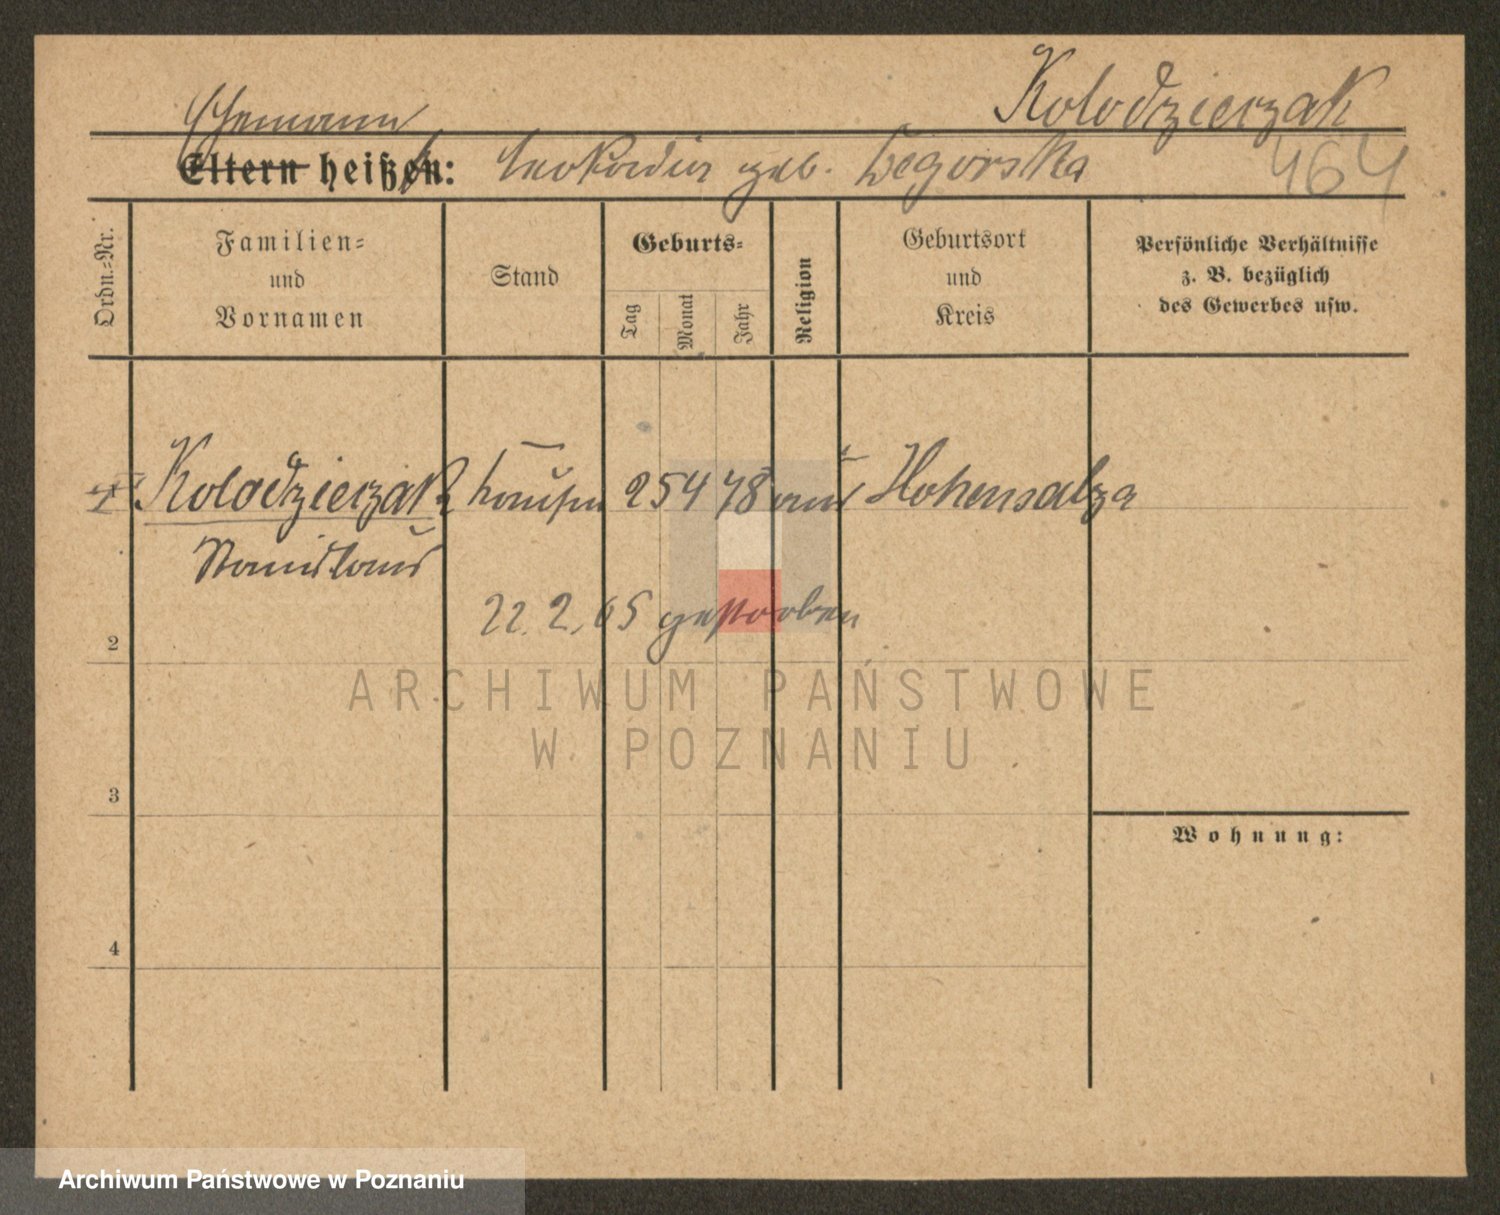 Kolodzierzak
Ehemann
Eltern heißen: Leokardia geb. Zegorska
464
Ordn.-Nr.
Familien-
und
Vornamen
Stand
Geburts-
Tag
Monat
Jahr
Religion
Geburtsort
und
Kreis
Persönliche Verhältnisse
z. B. bezüglich
des Gewerbes usw.
Kolodzierzak 25 4 78 Hohensalza
Stanislaus
22. 2. 05 gestorben
2
ARCHIWUM PAŃSTWOWE
W POZNANIU
3
Wohnung:
4
Archiwum Państwowe w Poznaniu